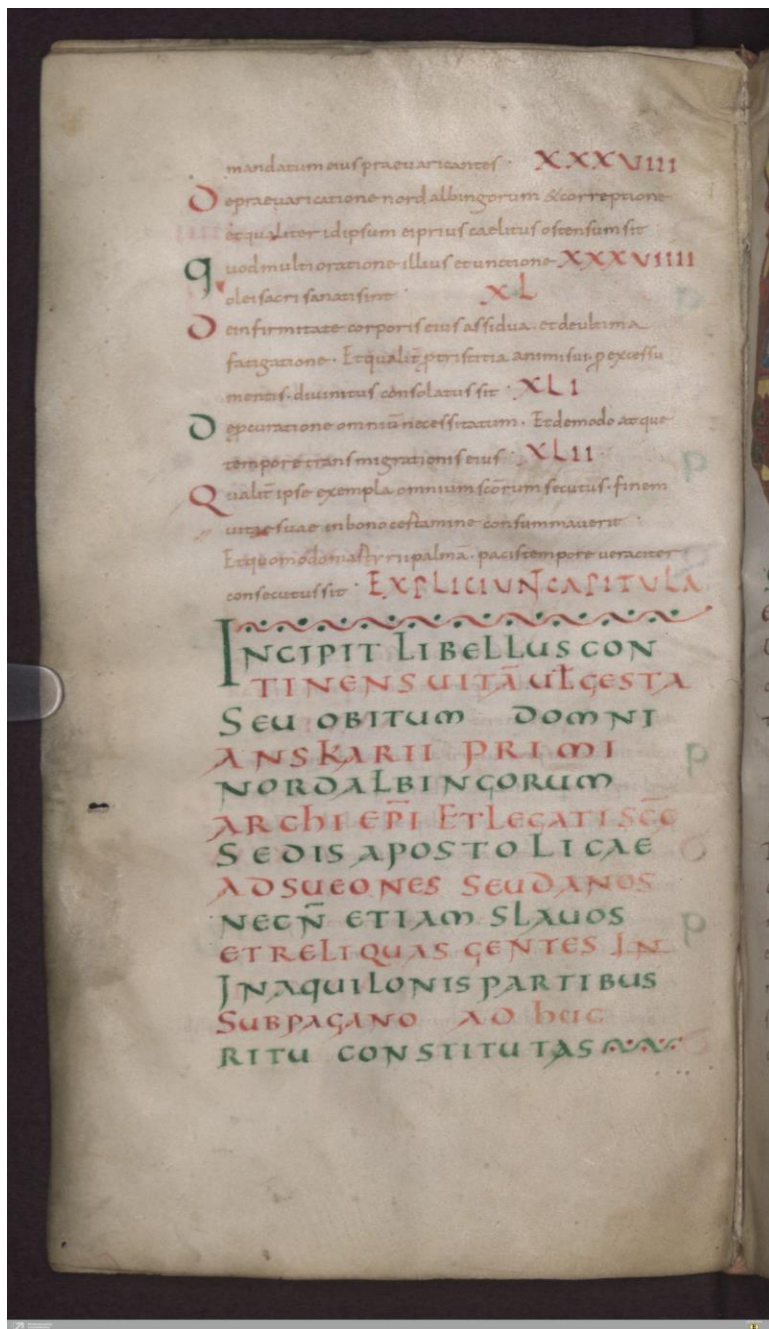 mandatum eius praevaricantes · XXXVIII
De praevaricatione nordalbingorum & correptione
et qualiter id ipsum ei prius caelitus ostensum sit
Quod multi oratione illius et unctione XXXVIIII
olei sacri sanati sint · XL
De infirmitate corporis eius assidua. et de ultima
fatigatione · Et qualit̄ p̱ tristitia animi sui. p̱ excessū
mentis. divinitus consolatus sit · XLI
De p̱curatione omniū necessitatum · Et de modo atque
tempore transmigrationis eius · XLII
Qualit̄ ipse exempla omnium sc̄orum secutus. finem
vitae suae in bono certamine consummaverit ·
Et quomodo martyrii palmā. pacis tempore veraciter
consecutus sit · EXPLICIUNT CAPITULA
INCIPIT LIBELLUS CON
TINENS UITĀ UEL GESTA
SEU OBITUM DOMNI
ANSKARII PRIMI
NORDALBINGORUM
ARCHIEP̄I ET LEGATI SC̄Ę
SEDIS APOSTOLICAE
AD SUEONES SEU DANOS
NECN̄ ETIAM SLAUOS
ET RELIQUAS GENTES IN
IN AQUILONIS PARTIBUS
SUB PAGANO ADHUC
RITU CONSTITUTAS